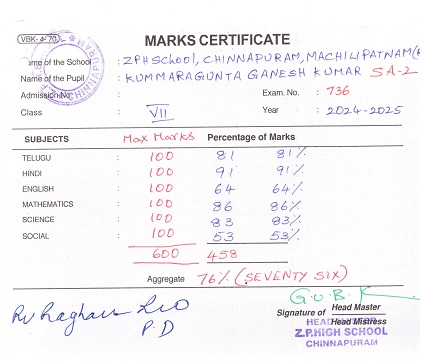 VBK-4-70
MARKS CERTIFICATE
ame of the School : ZPH SCHOOL, CHINNAPURAM, MACHILIPATNAM
Name of the Pupil : KUMMARAGUNTA GANESH KUMAR SA-2
Admission No. : Exam. No. : 736
Class : VII Year : 2024-2025
SUBJECTS Max Marks Percentage of Marks
TELUGU : 100 81 81%
HINDI : 100 91 91%
ENGLISH : 100 64 64%
MATHEMATICS : 100 86 86%
SCIENCE : 100 83 83%
SOCIAL : 100 53 53%
600 458
Aggregate 76% (SEVENTY SIX)
G.U.B.K
Signature of Head Master
Head Mistress
HEAD MASTER
Z.P.HIGH SCHOOL
CHINNAPURAM
P.D